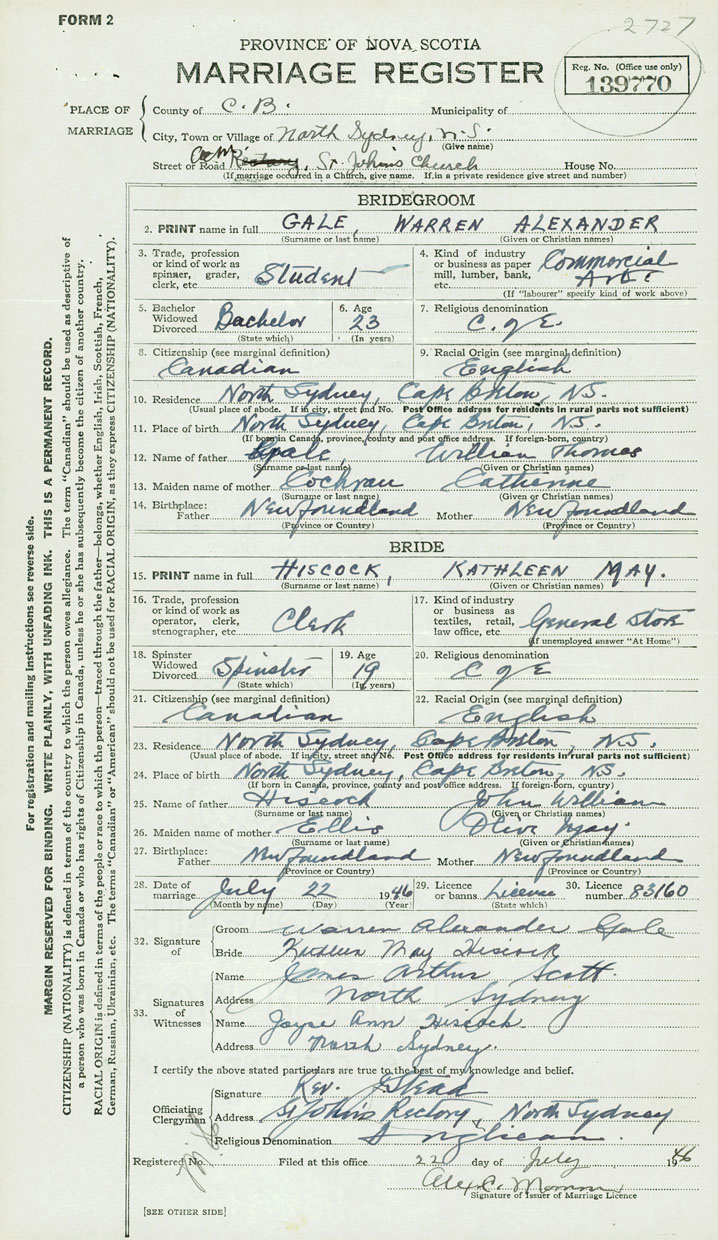 FORM 2
2727
PROVINCE OF NOVA SCOTIA
MARRIAGE REGISTER
Reg. No. (Office use only)
139770
PLACE OF MARRIAGE
County of C. B. Municipality of
City, Town or Village of North Sydney, N.S.
(Give name)
Street or Road Rectory, St. John's Church House No.
(If marriage occurred in a Church, give name. If in a private residence give street and number)
BRIDEGROOM
2. PRINT name in full GALE, WARREN ALEXANDER
(Surname or last name) (Given or Christian names)
3. Trade, profession or kind of work as spinner, grader, clerk, etc. Student
4. Kind of industry or business as paper mill, lumber, bank, etc. Commercial Art
(If "labourer" specify kind of work above)
5. Bachelor Widowed Divorced Bachelor
(State which)
6. Age 23
(In years)
7. Religious denomination C. of E.
8. Citizenship (see marginal definition) Canadian
9. Racial Origin (see marginal definition) English
10. Residence North Sydney, Cape Breton, N.S.
(Usual place of abode. If in city, street and No. Post Office address for residents in rural parts not sufficient)
11. Place of birth North Sydney, Cape Breton, N.S.
(If born in Canada, province, county and post office address. If foreign-born, country)
12. Name of father Gale, William Thomas
(Surname or last name) (Given or Christian names)
13. Maiden name of mother Cochran Catherine
(Surname or last name) (Given or Christian names)
14. Birthplace: Father Newfoundland Mother Newfoundland
(Province or Country) (Province or Country)
BRIDE
15. PRINT name in full HISCOCK, KATHLEEN MAY.
(Surname or last name) (Given or Christian names)
16. Trade, profession or kind of work as operator, clerk, stenographer, etc. Clerk
17. Kind of industry or business as textiles, retail, law office, etc. General Store
(If unemployed answer "At Home")
18. Spinster Widowed Divorced Spinster
(State which)
19. Age 19
(In years)
20. Religious denomination C of E
21. Citizenship (see marginal definition) Canadian
22. Racial Origin (see marginal definition) English
23. Residence North Sydney, Cape Breton, N.S.
(Usual place of abode. If in city, street and No. Post Office address for residents in rural parts not sufficient)
24. Place of birth North Sydney, Cape Breton, N.S.
(If born in Canada, province, county and post office address. If foreign-born, country)
25. Name of father Hiscock John William
(Surname or last name) (Given or Christian names)
26. Maiden name of mother Ellis Olive May.
(Surname or last name) (Given or Christian names)
27. Birthplace: Father Newfoundland Mother Newfoundland
(Province or Country) (Province or Country)
28. Date of marriage July 22 1946
(Month by name) (Day) (Year)
29. Licence or banns License
(State which)
30. Licence number 83160
32. Signature of
Groom Warren Alexander Gale
Bride Kathleen May Hiscock
33. Signatures of Witnesses
Name James Arthur Scott.
Address North Sydney
Name Joyce Ann Hiscock.
Address North Sydney.
I certify the above stated particulars are true to the best of my knowledge and belief.
Officiating Clergyman
Signature Rev. Stead
Address St John's Rectory, North Sydney
Religious Denomination Anglican.
Registered No. Filed at this office 22 day of July 1946
Signature of Issuer of Marriage Licence
[SEE OTHER SIDE]
For registration and mailing instructions see reverse side.
MARGIN RESERVED FOR BINDING. WRITE PLAINLY, WITH UNFADING INK. THIS IS A PERMANENT RECORD.
CITIZENSHIP (NATIONALITY) is defined in terms of the country to which the person owes allegiance. The term "Canadian" should be used as descriptive of
a person who was born in Canada or who has rights of Citizenship in Canada, unless he or she has subsequently become the citizen of another country.
RACIAL ORIGIN is defined in terms of the people or race to which the person—traced through the father—belongs, whether English, Irish, Scottish, French,
German, Russian, Ukrainian, etc. The terms "Canadian" or "American" should not be used for RACIAL ORIGIN, as they express CITIZENSHIP (NATIONALITY).